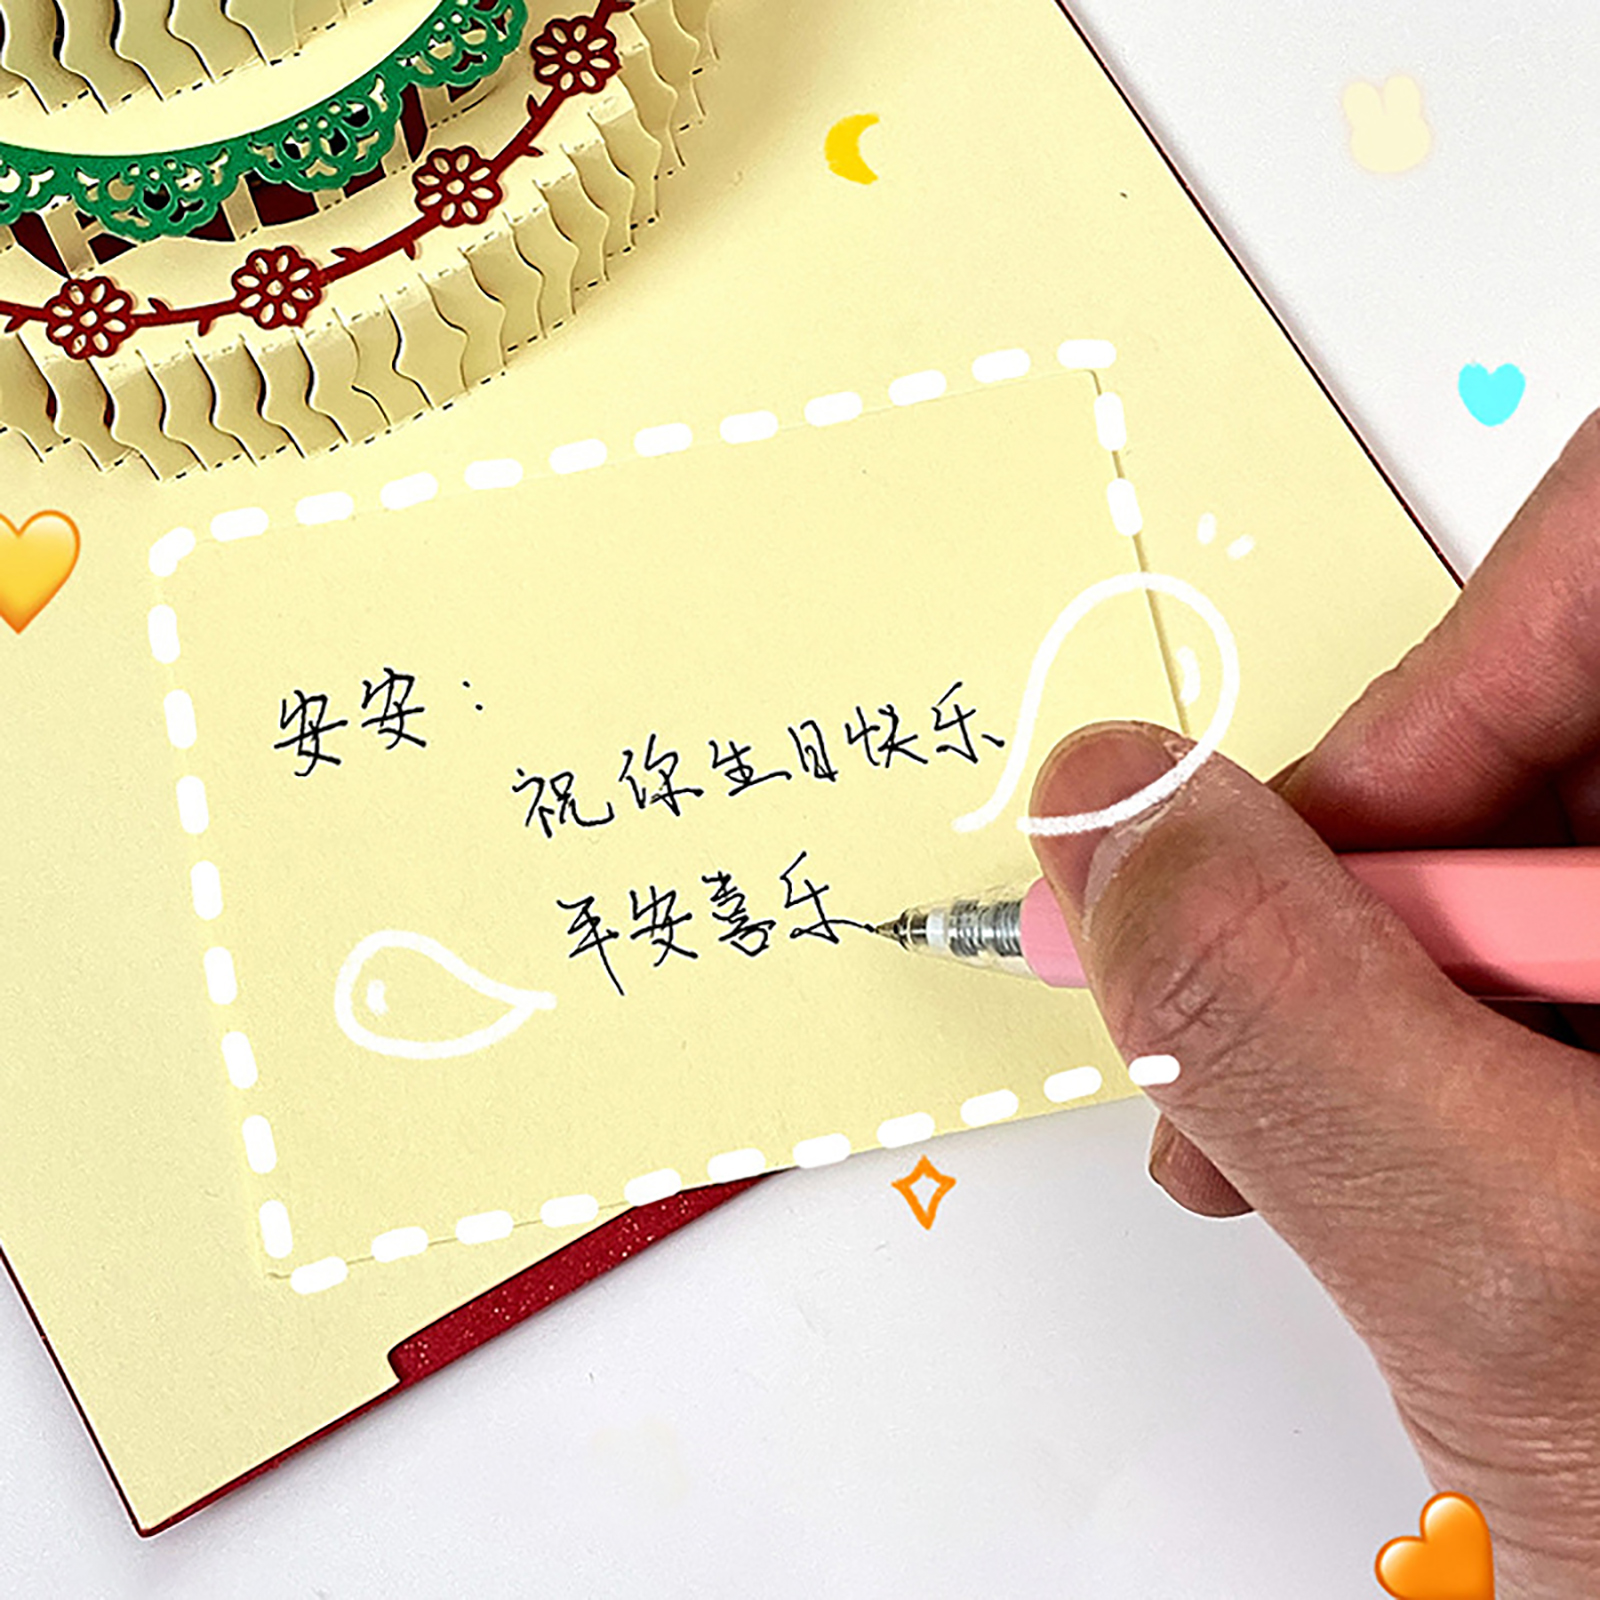 安安：
祝你生日快乐
平安喜乐